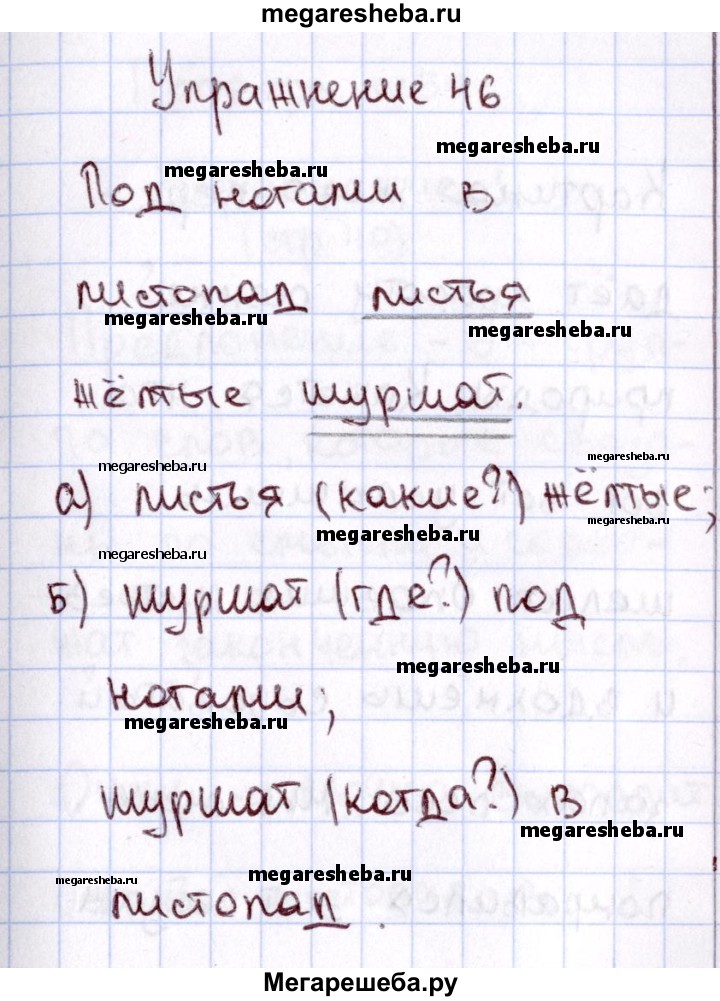 megaresheba.ru
Упражнение 46
megaresheba.ru
Под ногами в
листопад листья
megaresheba.ru
megaresheba.ru
жёлтые шуршат.
megaresheba.ru
megaresheba.ru
а) листья (какие?) жёлтые;
megaresheba.ru
megaresheba.ru
megaresheba.ru
Б) шуршат (где?) под
megaresheba.ru
ногами;
megaresheba.ru
шуршат (когда?) в
megaresheba.ru
megaresheba.ru
megaresheba.ru
листопад.
Мегарешеба.ру